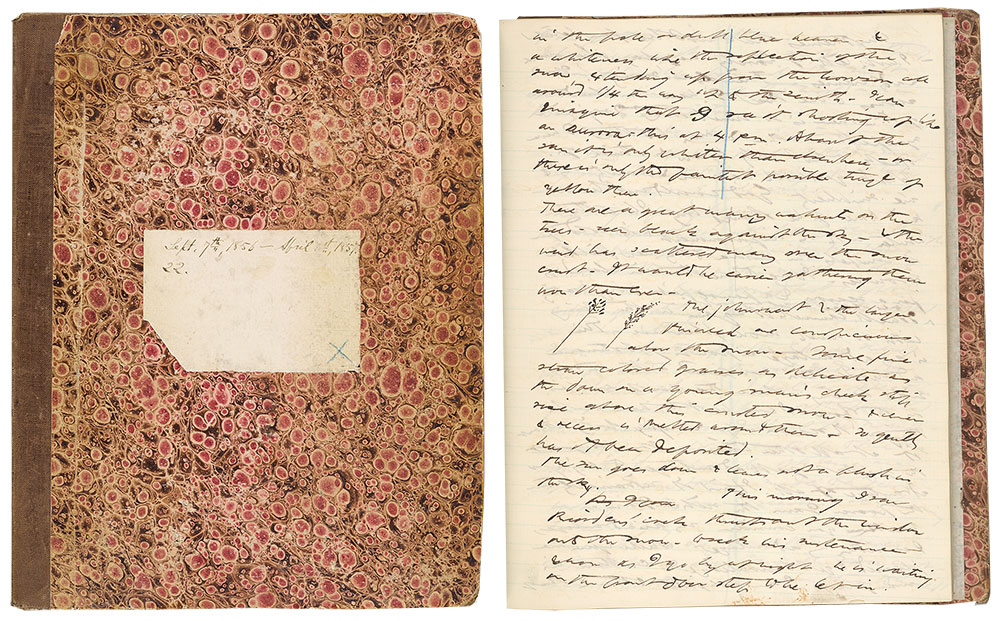 Sept. 7th, 1856 – April 1st, 1857
22.
in the pale or dull blue heaven &
a whiteness like the reflection of the
snow extending up from the horizon all
around 1/4 the way up to the zenith. I can
imagine that I see it shooting up like
an aurora this at 4 pm. About the
sun it is only whiter than elsewhere – or
there is only the faintest possible tinge of
yellow there.
There are a great many walnuts on the
trees – seen black against the sky – & the
wind has scattered many over the snow
crust. It would be easier gathering them
now than ever –
The johnswort & the larger
pinweed are conspicuous
above the snow – Some fine
straw colored grasses, as delicate as
the down on a young man's cheek, still
rise above this crusted snow – & even
a recess is melted around them – so gently
has it been deposited.
The sun goes down & leaves not a blush in
the sky.
This morning I saw
Riordan's cock thrust out the window
on to the snow – to seek his sustenance
& now as I go by at night he is waiting
on the front door step to be let in.